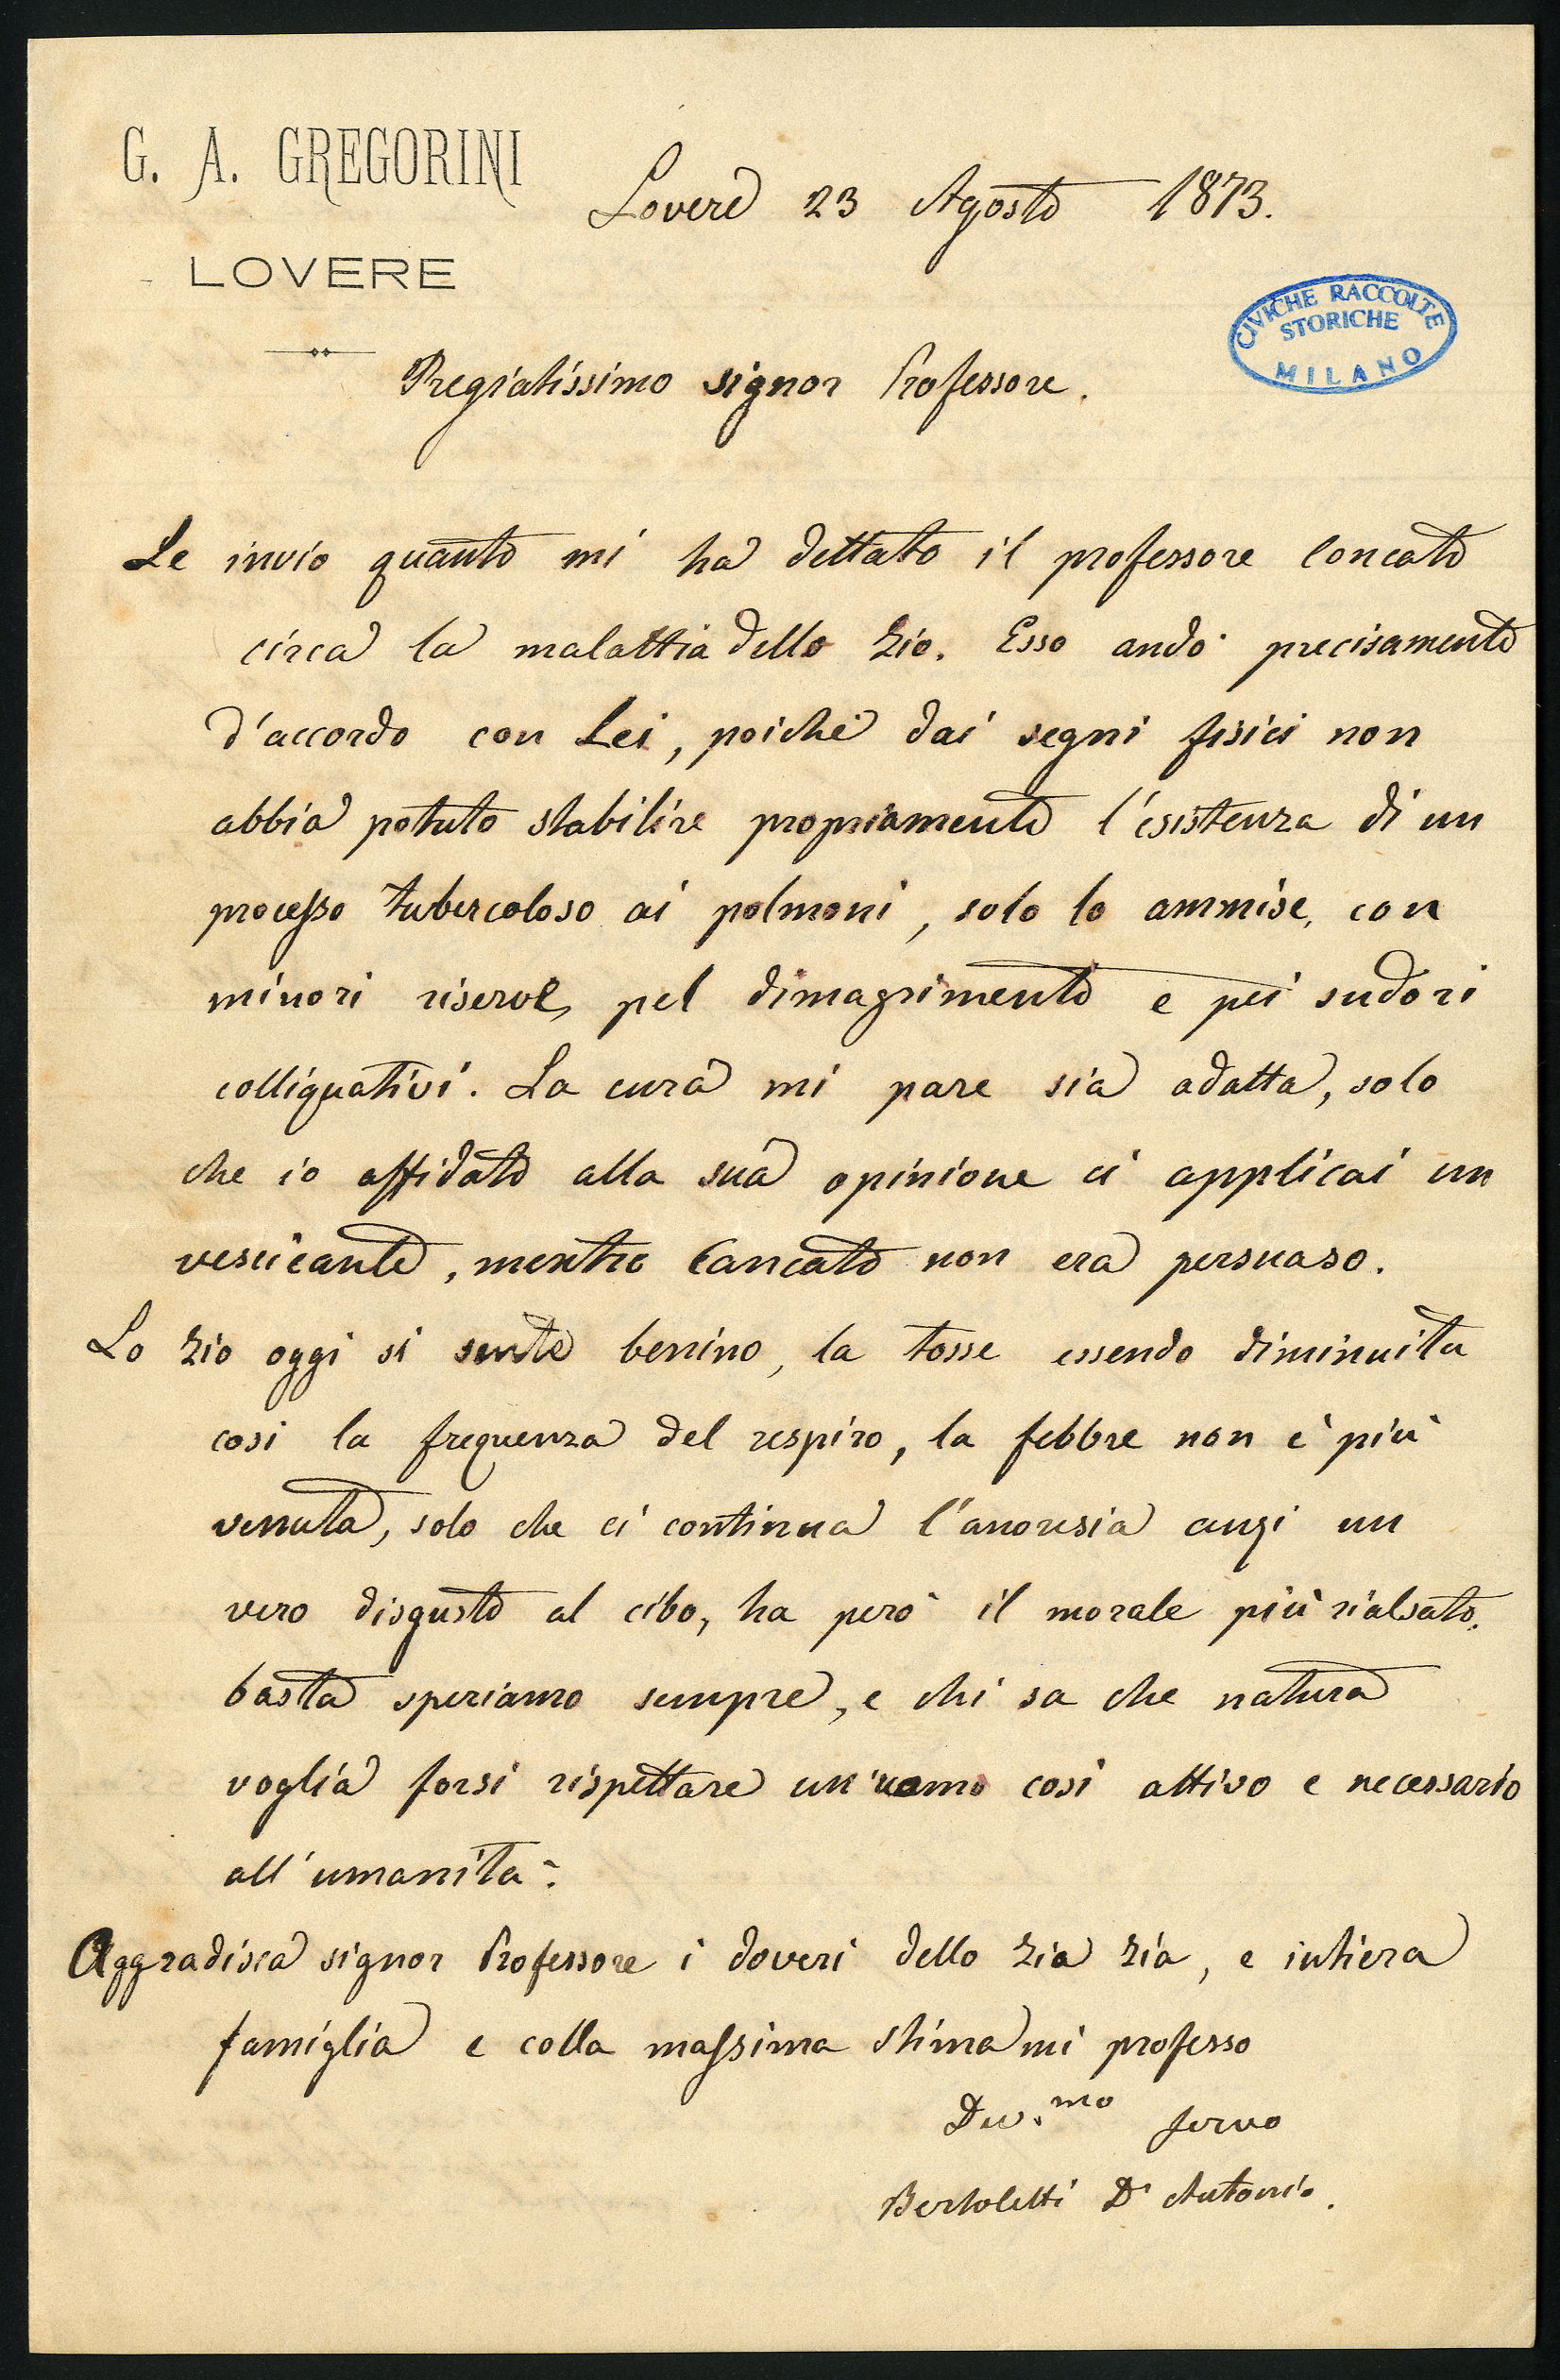 G. A. GREGORINI
LOVERE
Lovere 23 Agosto 1873.
CIVICHE RACCOLTE
STORICHE
MILANO
Pregiatissimo signor Professore.
Le invio quanto mi ha dettato il professore Concato
circa la malattia dello Zio. Esso andò precisamente
d'accordo con Lei, poichè dai segni fisici non
abbia potuto stabilire propriamente l'esistenza di un
processo tubercoloso ai polmoni, solo lo ammise, con
minori riserve, pel dimagrimento e pei sudori
colliquativi. La cura mi pare sia adatta, solo
che io affidato alla sua opinione ci applicai un
vescicante, mentre Concato non era persuaso.
Lo Zio oggi si sente benino, la tosse essendo diminuita
così la frequenza del respiro, la febbre non è più
venuta, solo che ci continua l'anoresia anzi un
vero disgusto al cibo, ha però il morale più rialsato.
basta speriamo sempre, e chi sa che natura
voglia forsi rispettare un'uomo così attivo e necessario
all'umanità.
Aggradisca signor Professore i doveri dello Zio Zia, e intiera
famiglia e colla massima stima mi professo
Dev.mo servo
Bertoletti Dr Antonio.